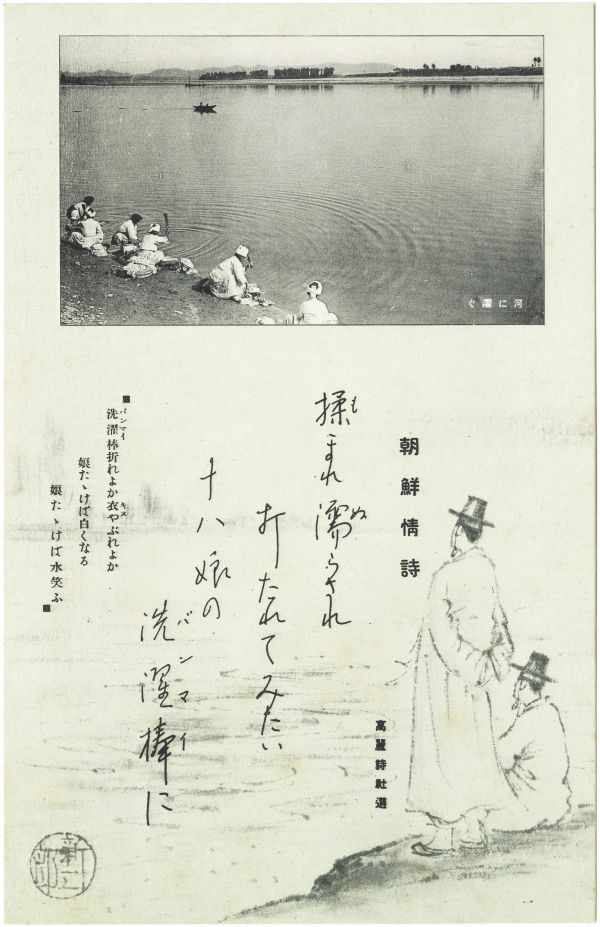 河に濯ぐ
朝鮮情詩
高麗詩社選
揉まれ濡らされ
も
ぬ
打たれてみたい
十八娘の
洗濯棒に
バンマイ
■洗濯棒折れよか衣やぶれよか
パンマイ
キヌ
娘たゝけば白くなる
娘たゝけば水笑ふ■